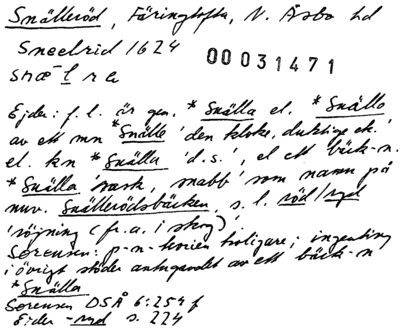 Snälleröd, Färingtofta, N. Åsbo hd
Sneelrid 1624
00031471
snæ̅ l r ə
Ejder: f.l. är gen. *Snälla el. *Snällo
av ett mn *Snälle 'den kloke, duktige ek.'
el. kn *Snälla 'd.s.', el ett bäck-n.
*Snälla 'rask, snabb' som namn på
nuv. Snällerödsbäcken, s.l. röd/ryd
'röjning (fr.a. i skog)'.
Sørensen: p-n-teorien troligare; ingenting
i övrigt stöder antagandet av ett bäck-n
*Snälla
Sørensen DSÅ 6:254 f
Ejder -ryd s. 224